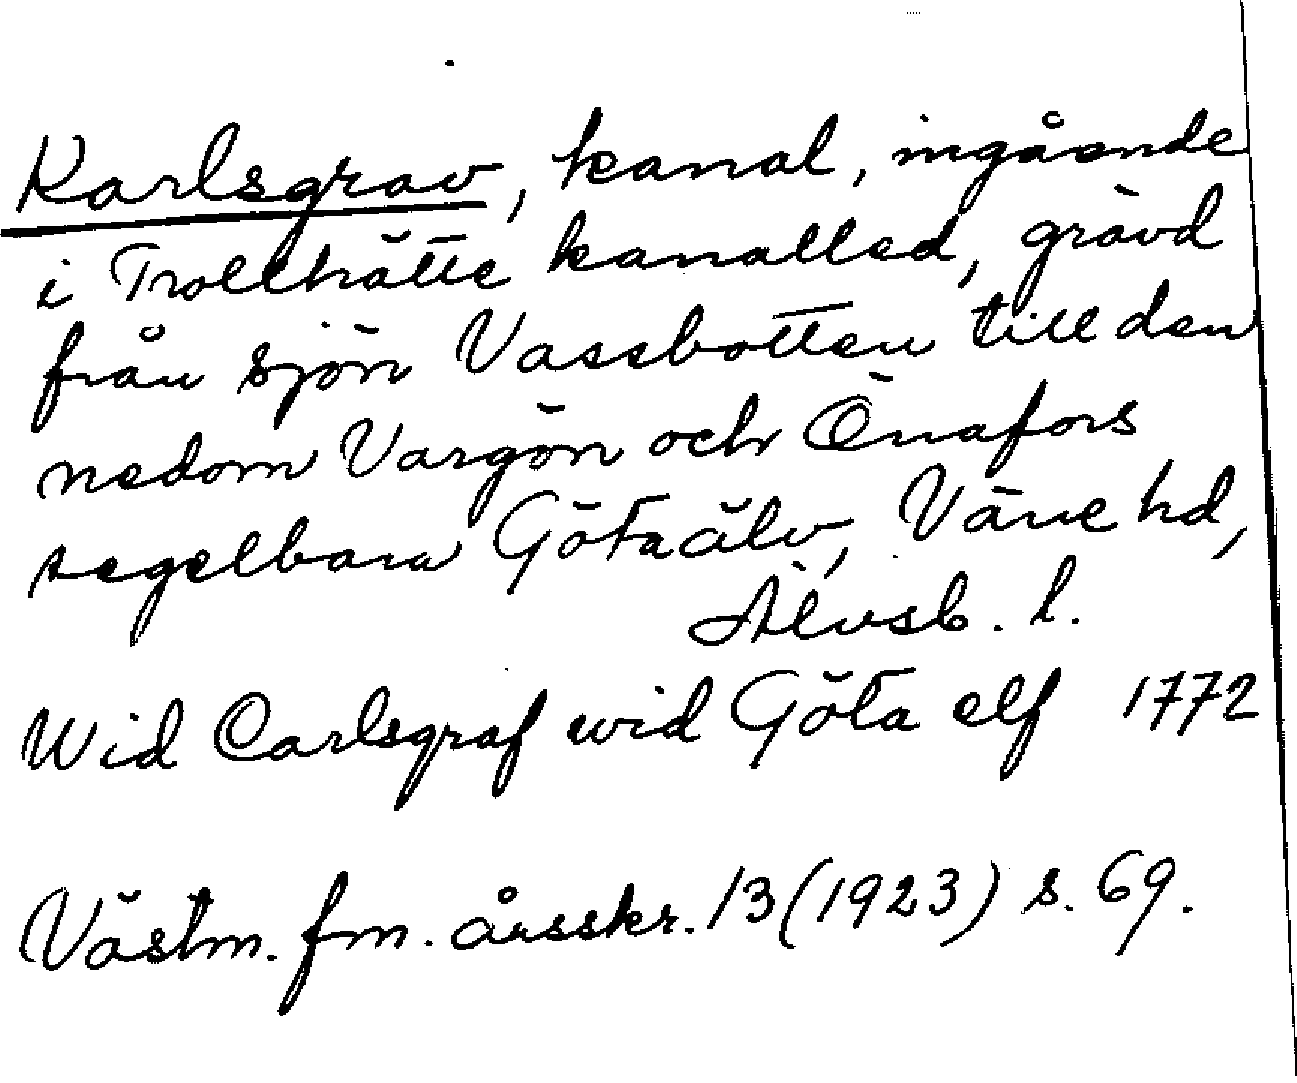 Karlsgrav, kanal, ingående
i Trollhätte kanalled, grävd
från sjön Vassbotten till den
nedom Vargön och Önafors
segelbara Göta älv, Väne hd,
Älvsb. l.
Wid Carlsgraf wid Göta elf 1772
Västm. fm. årsskr. 13 (1923) s. 69.